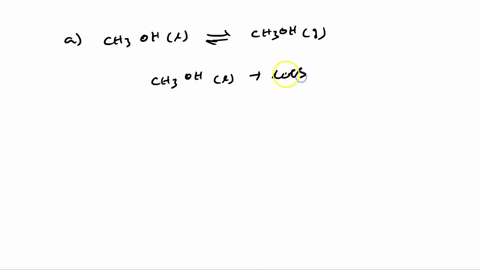 a) CH3 OH (l) ⇌ CH3OH (g)
CH3 OH (l) →